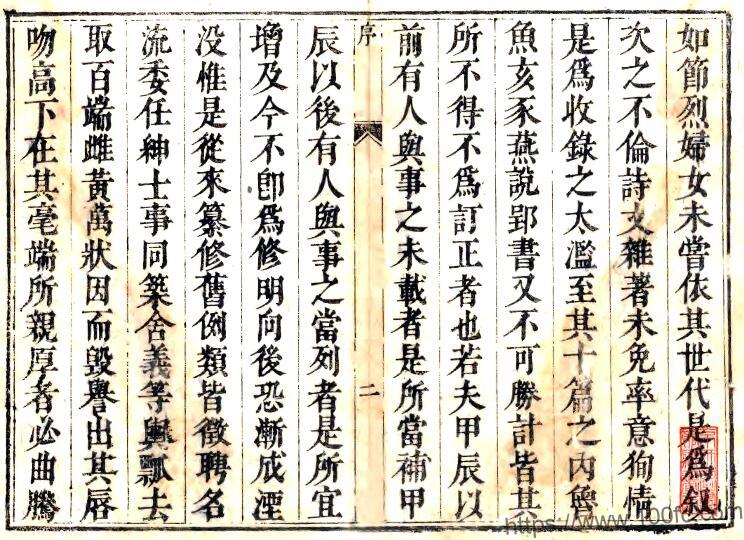 如節烈婦女未嘗依其世代是爲叙
次之不倫詩文雜著未免率意狥情
是爲收錄之太濫至其十篇之内魯
魚亥豕燕說郢書又不可勝計皆其
所不得不爲訂正者也若夫甲辰以
前有人與事之未載者是所當補甲
序
二
辰以後有人與事之當列者是所宜
增及今不卽爲修明向後恐漸成湮
没惟是從來纂修舊例類皆徵聘名
流委任紳士事同築舍義等輿瓢去
取百端雌黃萬狀因而毀譽出其唇
吻高下在其毫端所親厚者必曲騰